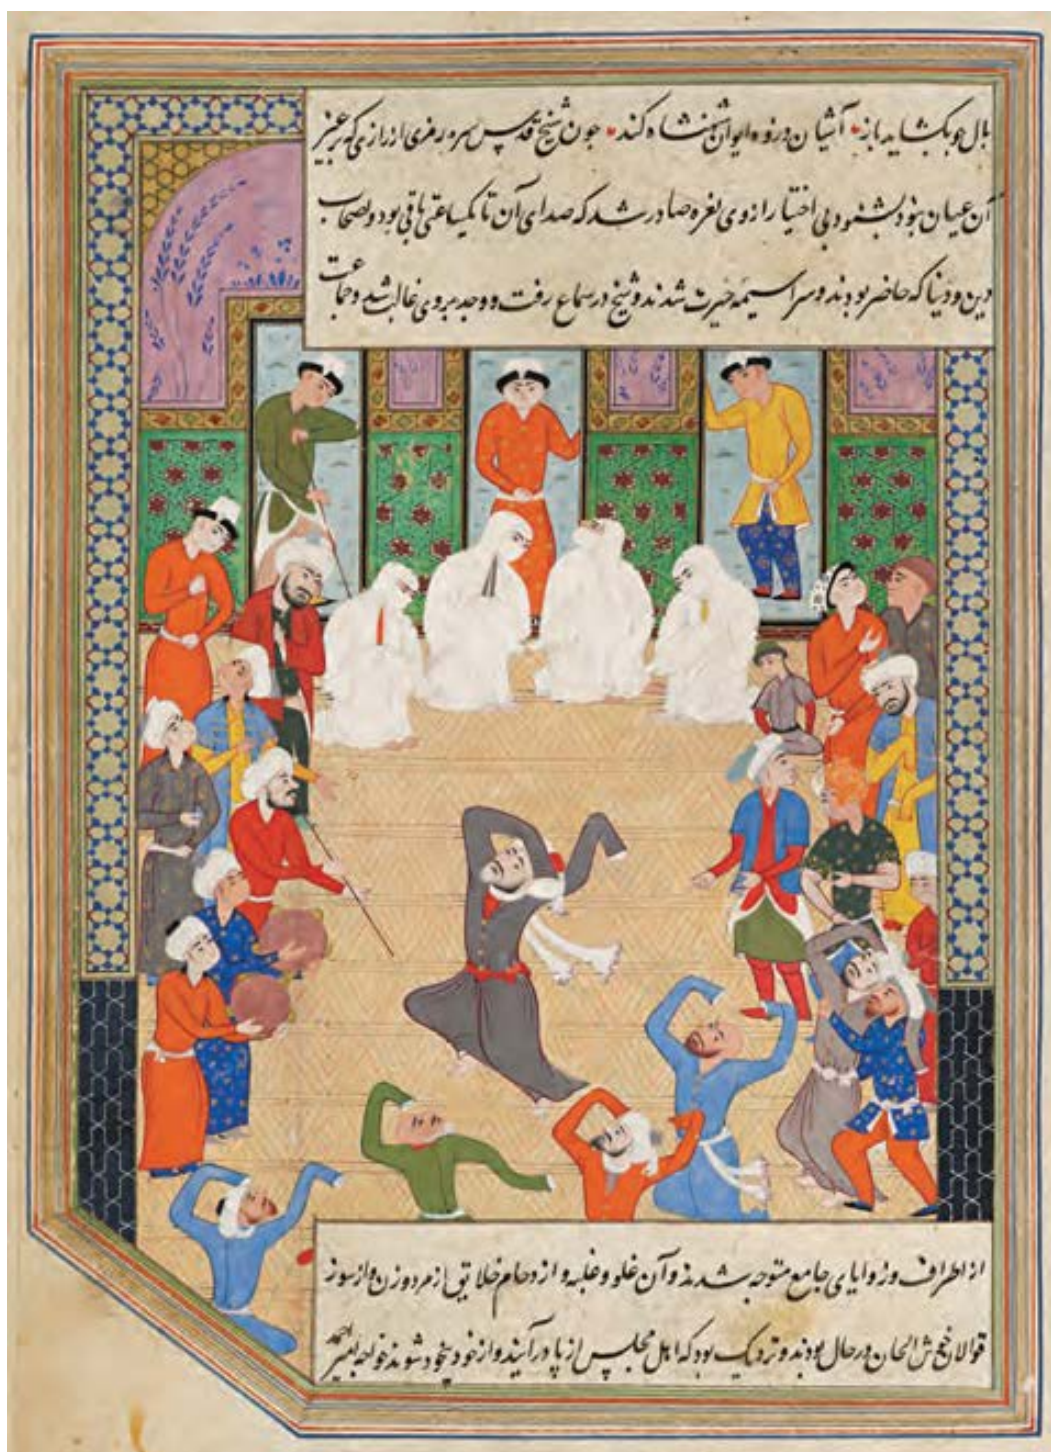 بال جو بکشاید باز آشیان در ایوان شهنشاه کند جون شیخ قدس سره رمزی از رازی که بر
آن عیان نبود بشنود بی اختیار از وی نعره صادر شد که صدای آن تا یکساعتی باقی بود و اصحاب
دین و دنیا که حاضر بودند و سراسیمه حیرت شدند و شیخ در سماع رفت و وجد بر وی غالب شد و جماعت
از اطراف و زوایای جامع متوجه شدند و آن غلو و غلبه و ازدحام خلایق از مرد و زن و از سوز
قوالان خوش الحان در حال بودند و نزدیک بود که اهل مجلس از پا درآیند و از خود بیخود شوند خواجه امیر احمد